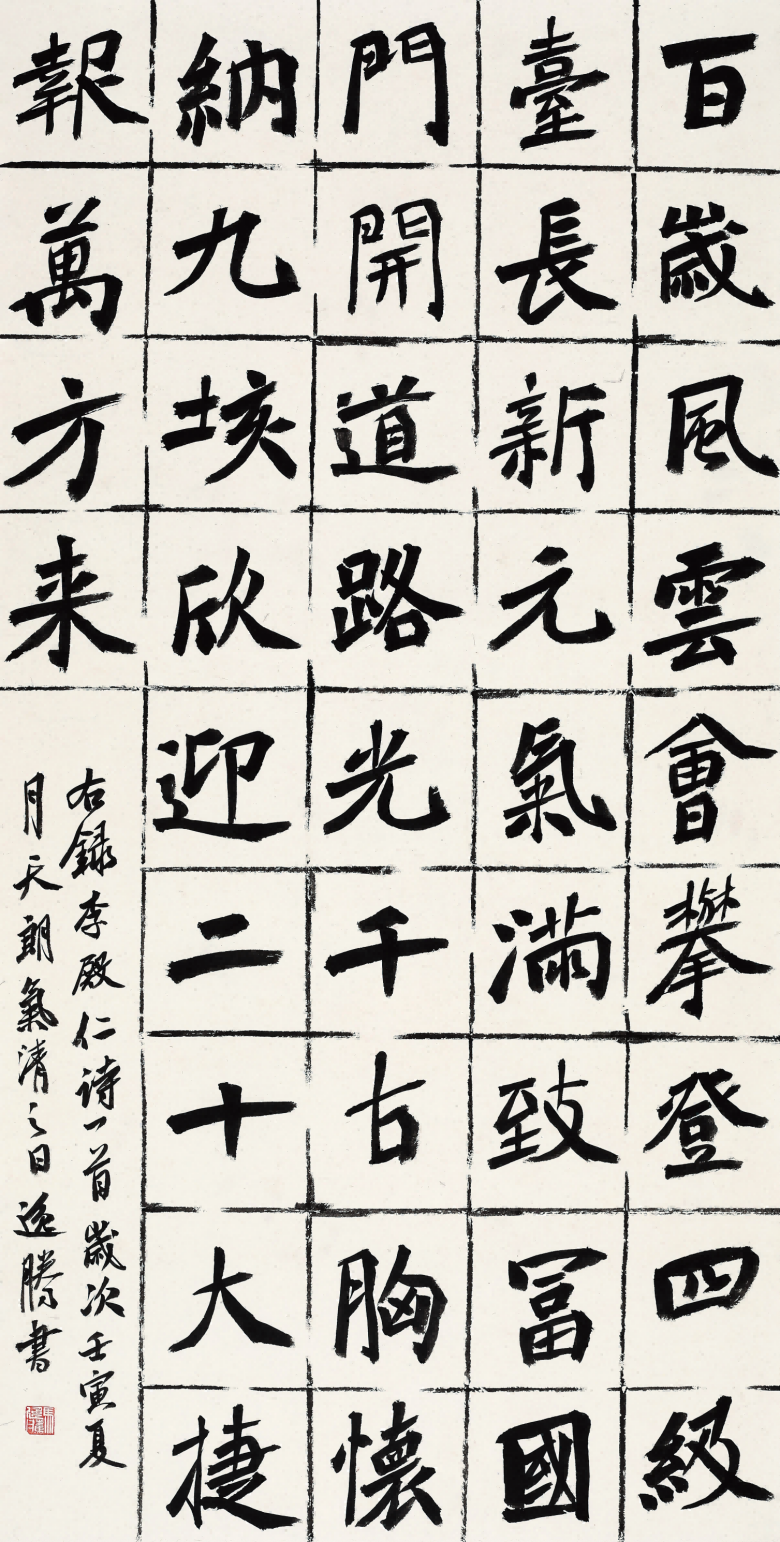 百歲風雲會攀登四級
臺長新元氣滿致冨國
門開道路光千古胸懷
納九垓欣迎二十大捷
報萬方来
右錄李殿仁诗一首歲次壬寅夏
月天朗氣清之日逸騰書